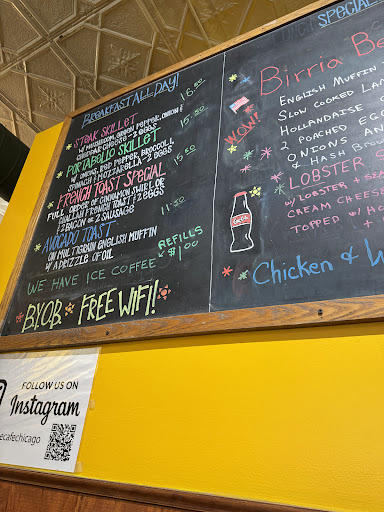 BREAKFAST ALL DAY!
STEAK SKILLET 16.50
W/ MUSHROOM, GREEN PEPPER, ONION &
CHEDDAR CHEESE - 2 EGGS
PORTABELLO SKILLET 15.50
W/ ONIONS, RED PEPPER, BROCCOLI,
SPINACH & MOZZARELLA - 2 EGGS
FRENCH TOAST SPECIAL 15.50
FULL ORDER OF CINNAMON SWIRL OR
ITALIAN FRENCH TOAST & 2 EGGS
& 2 BACON OR 2 SAUSAGE
AVOCADO TOAST 11.50
ON MULTIGRAIN ENGLISH MUFFIN
W/ A DRIZZLE OF OIL
WE HAVE ICE COFFEE REFILLS $1.00
B.Y.O.B. FREE WIFI!
SPECIAL
WOW!
Birria Be
ENGLISH MUFFIN
SLOW COOKED LA
HOLLANDAISE
2 POACHED EG
ONIONS AN
& HASH BRO
LOBSTER
W/ LOBSTER + SE
CREAM CHEESE
TOPPED W/ HO
+
Chicken & W
FOLLOW US ON
Instagram
ecafechicago